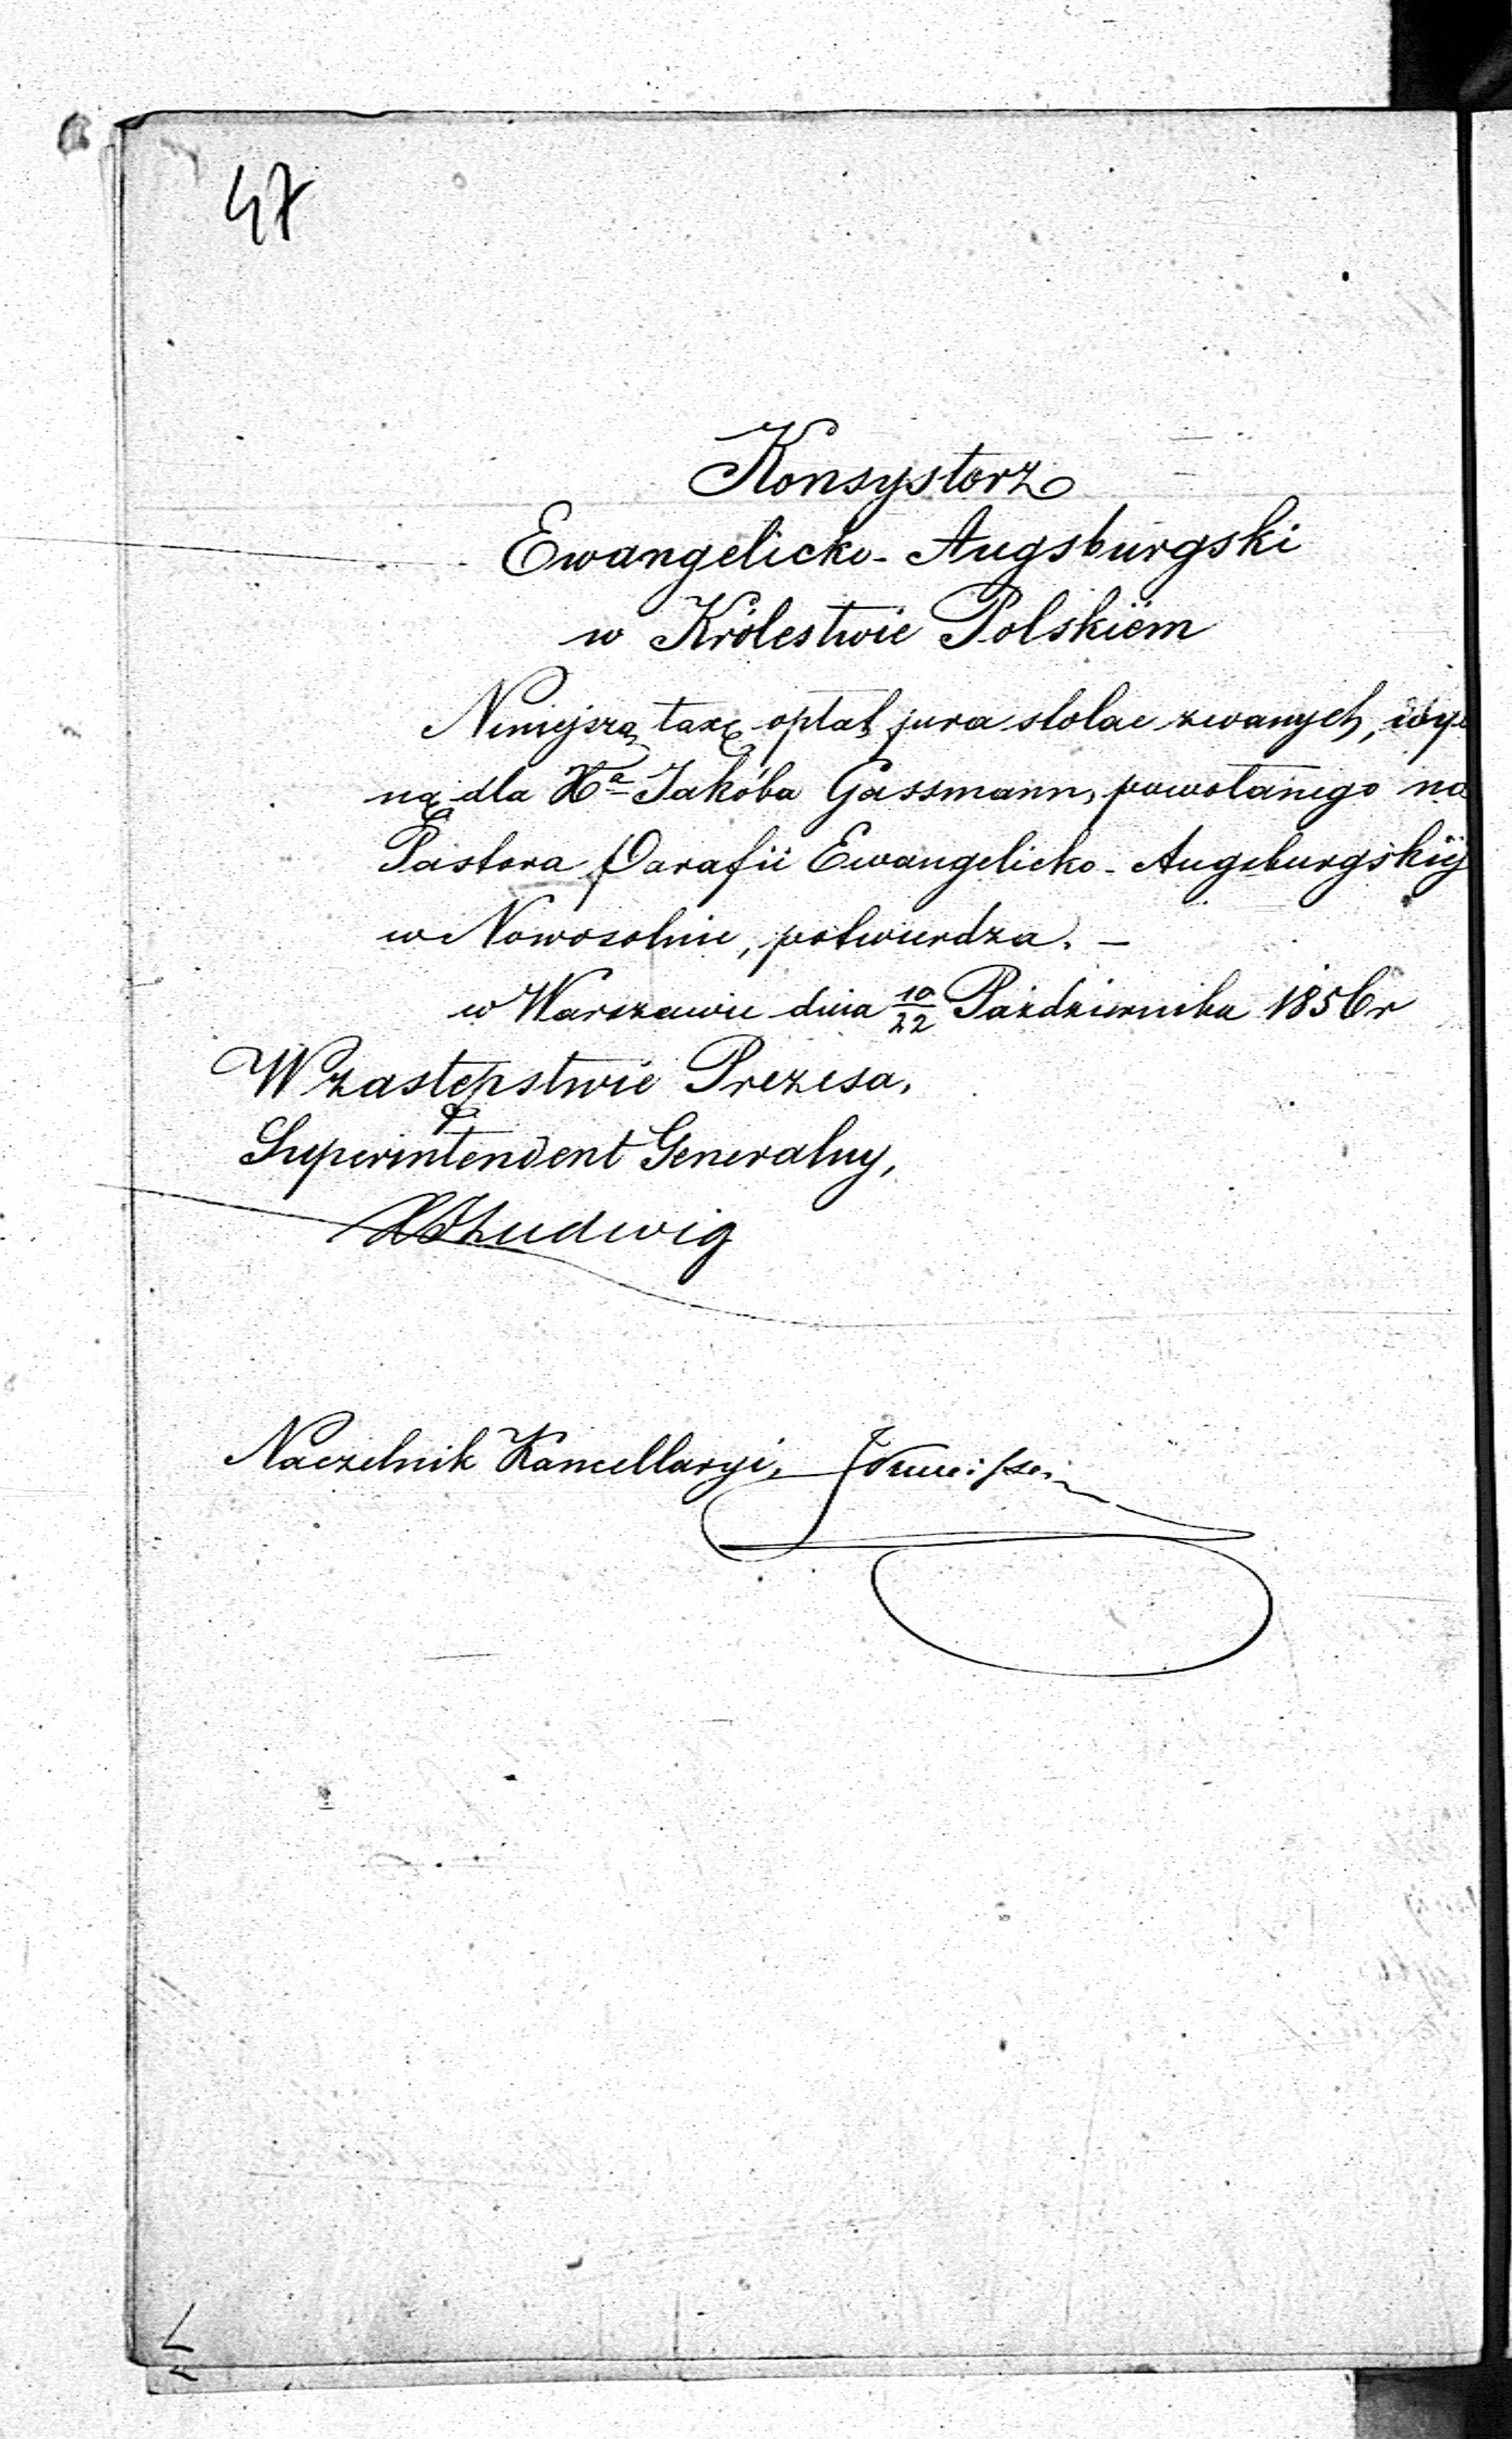 47
Konsystorz
Ewangelicko-Augsburgski
w Królestwie Polskiém
Niniejszą taxę opłat jura stolae zwanych,
ną dla Xa Jakóba Gassmann, powołanego na
Pastora Parafii Ewangelicko-Augsburgskiéj
w Nowosolnie, potwierdza. —
w Warszawie dnia 10/22 Października 1856r
W zastępstwie Prezesa,
Superintendent Generalny,
Ludwig
Naczelnik Kancellaryi,